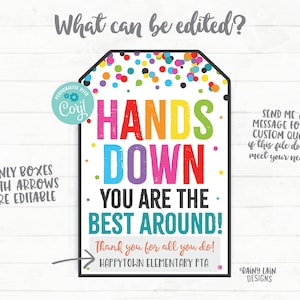 What can be edited?
PERSONALIZE WITH
Corjl
HANDS
DOWN
YOU ARE THE
BEST AROUND!
Thank you for all you do!
HAPPYTOWN ELEMENTARY PTA
ONLY BOXES
WITH ARROWS
ARE EDITABLE
SEND ME A
MESSAGE FOR
CUSTOM QUO
if this file do
meet your ne
RAINY LAIN
DESIGNS